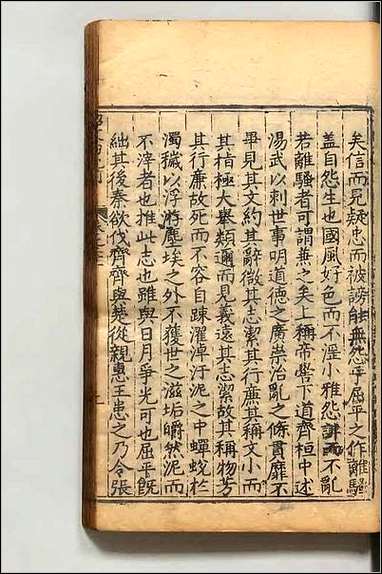 矣信而見疑忠而被謗能無怨乎屈平之作離騷
盖自怨生也國風好色而不淫小雅怨誹而不亂
若離騷者可謂兼之矣上稱帝嚳下道齊桓中述
湯武以刺世事明道德之廣崇治亂之條貫靡不
畢見其文約其辭微其志潔其行廉其稱文小而
其指極大舉類邇而見義遠其志潔故其稱物芳
其行廉故死而不容自踈濯淖汙泥之中蟬蛻於
濁穢以浮游塵埃之外不獲世之滋垢皭然泥而
不滓者也推此志也雖與日月爭光可也屈平旣
絀其後秦欲伐齊齊與楚從親惠王患之乃令張